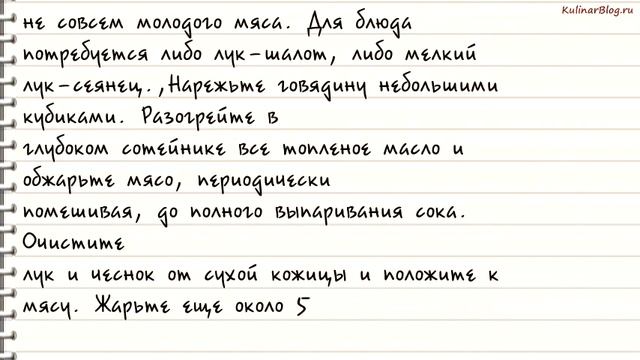 KulinarBlog.ru
не совсем молодого мяса. Для блюда
потребуется либо лук-шалот, либо мелкий
лук-сеянец.,Нарежьте говядину небольшими
кубиками. Разогрейте в
глубоком сотейнике все топленое масло и
обжарьте мясо, периодически
помешивая, до полного выпаривания сока.
Очистите
лук и чеснок от сухой кожицы и положите к
мясу. Жарьте еще около 5